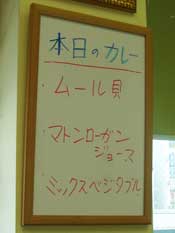 本日のカレー
・ムール貝
・マトンローガン
ジョース
・ミックスベジタブル